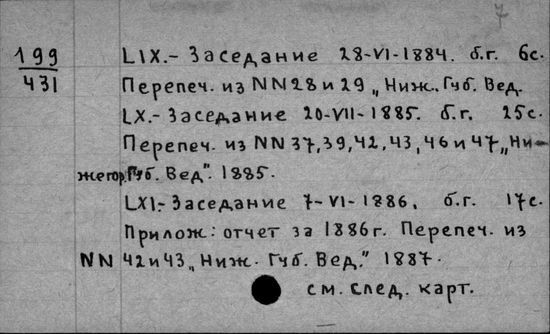 7
199
431
LIX.- Заседание 28-VI-1884. б.г. 6с.
Перепеч. из NN 28 и 29 „Ниж. Губ. Вед.
LX.- Заседание 20-VII-1885. б.г. 25с.
Перепеч. из NN 37, 39, 42, 43, 46 и 47 „Ни-
жегор. Губ. Вед". 1885.
LXI.- Заседание 7-VI-1886. б.г. 17с.
Прилож: отчет за 1886г. Перепеч. из
NN 42 и 43 „Ниж. Губ. Вед." 1887.
см. след. карт.